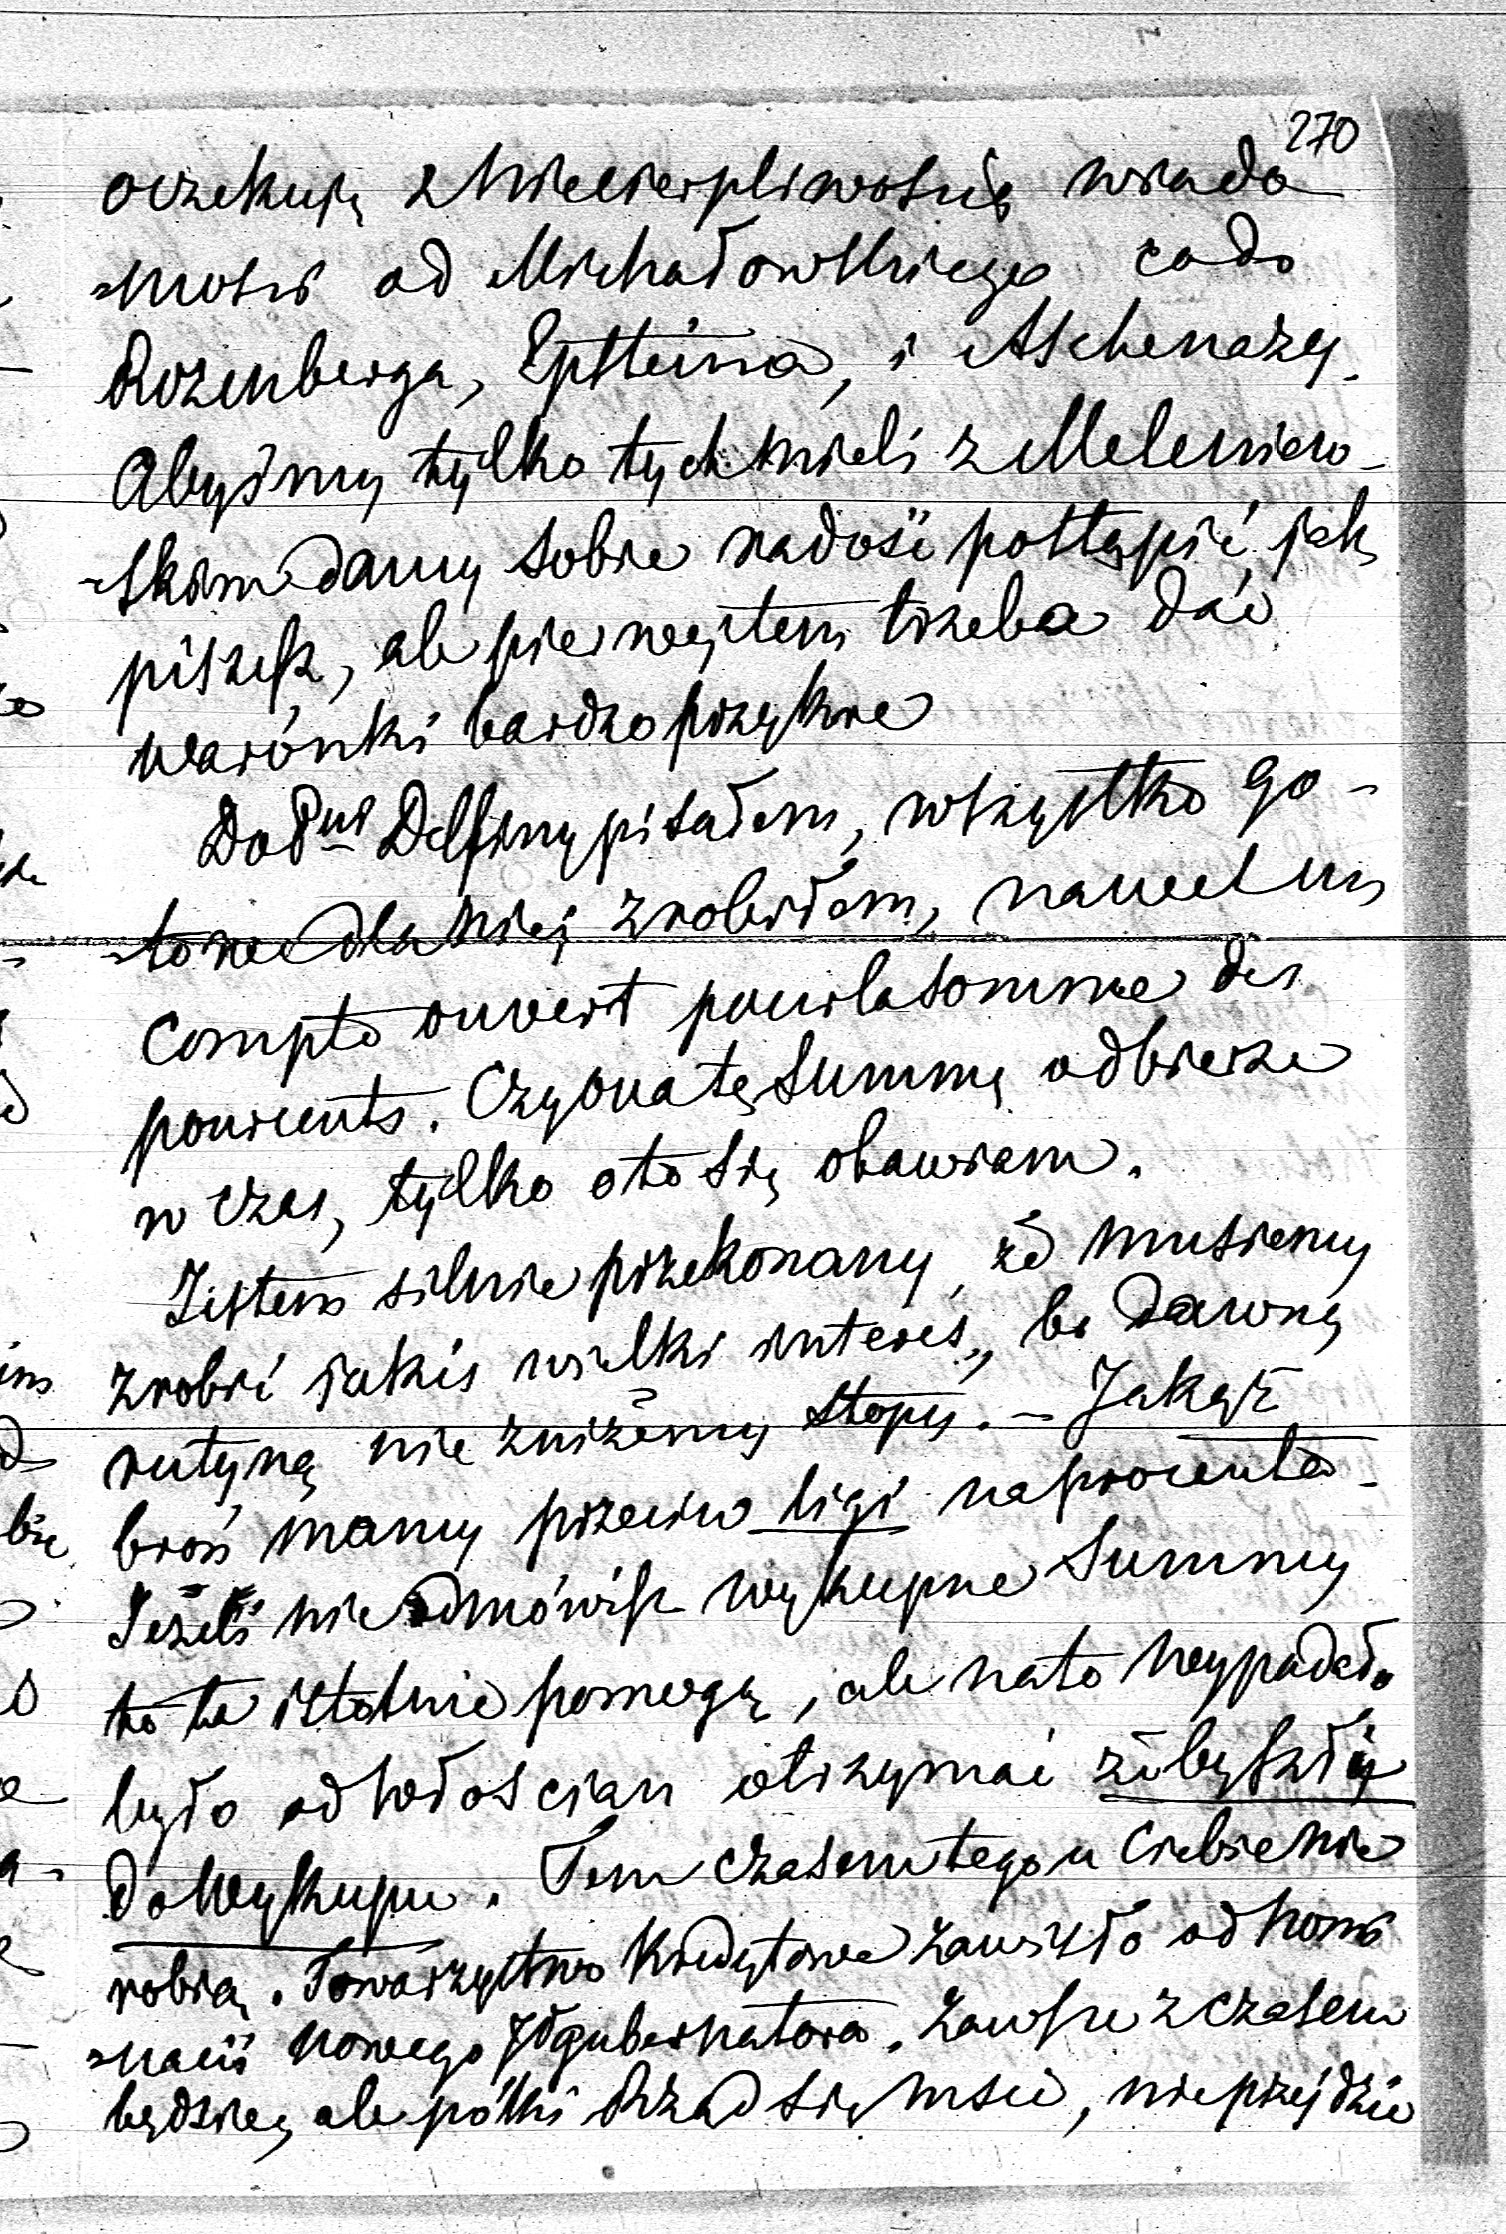 270
oczekuję z niecierpliwością wiado
=mości od Michałowskiego co do
Rozenberga, Epsteina, i Aschenazy.
Abyśmy tylko tych mieli z Meleniew-
=skim damy sobie radość postąpić, jak
piszesz, ale pierwej tem trzeba dać
warónki bardzo przykre
Do Pni Delfiny pisałem, wszystko go-
=towe dla niej zrobiłem, nawet un
Compte ouvert pour la somme des
pourcents. Czy ona tę Summę odbierze
w czas, tylko o to się obawiam.
Jestem silnie przekonany, że musiemy
zrobić jakiś wielki interes, bo dawną
rutyną nie zniżemy stopy. – Jakąż
broń mamy przeciw ligi na procenta.
Jeżeli nie odmówisz wykupne Summy
to te istotnie pomogą, ale na to wypadało
było od włościan otrzymać żeby szli
do wykupu. Tem czasem tego u Ciebie nie
robią. Towarzystwo kredytowe zawisło od nomi
=nacii nowego Jłgubernatora. Zawsze z czasem
będzie, ale póki Rząd się mści, nie przejdzie